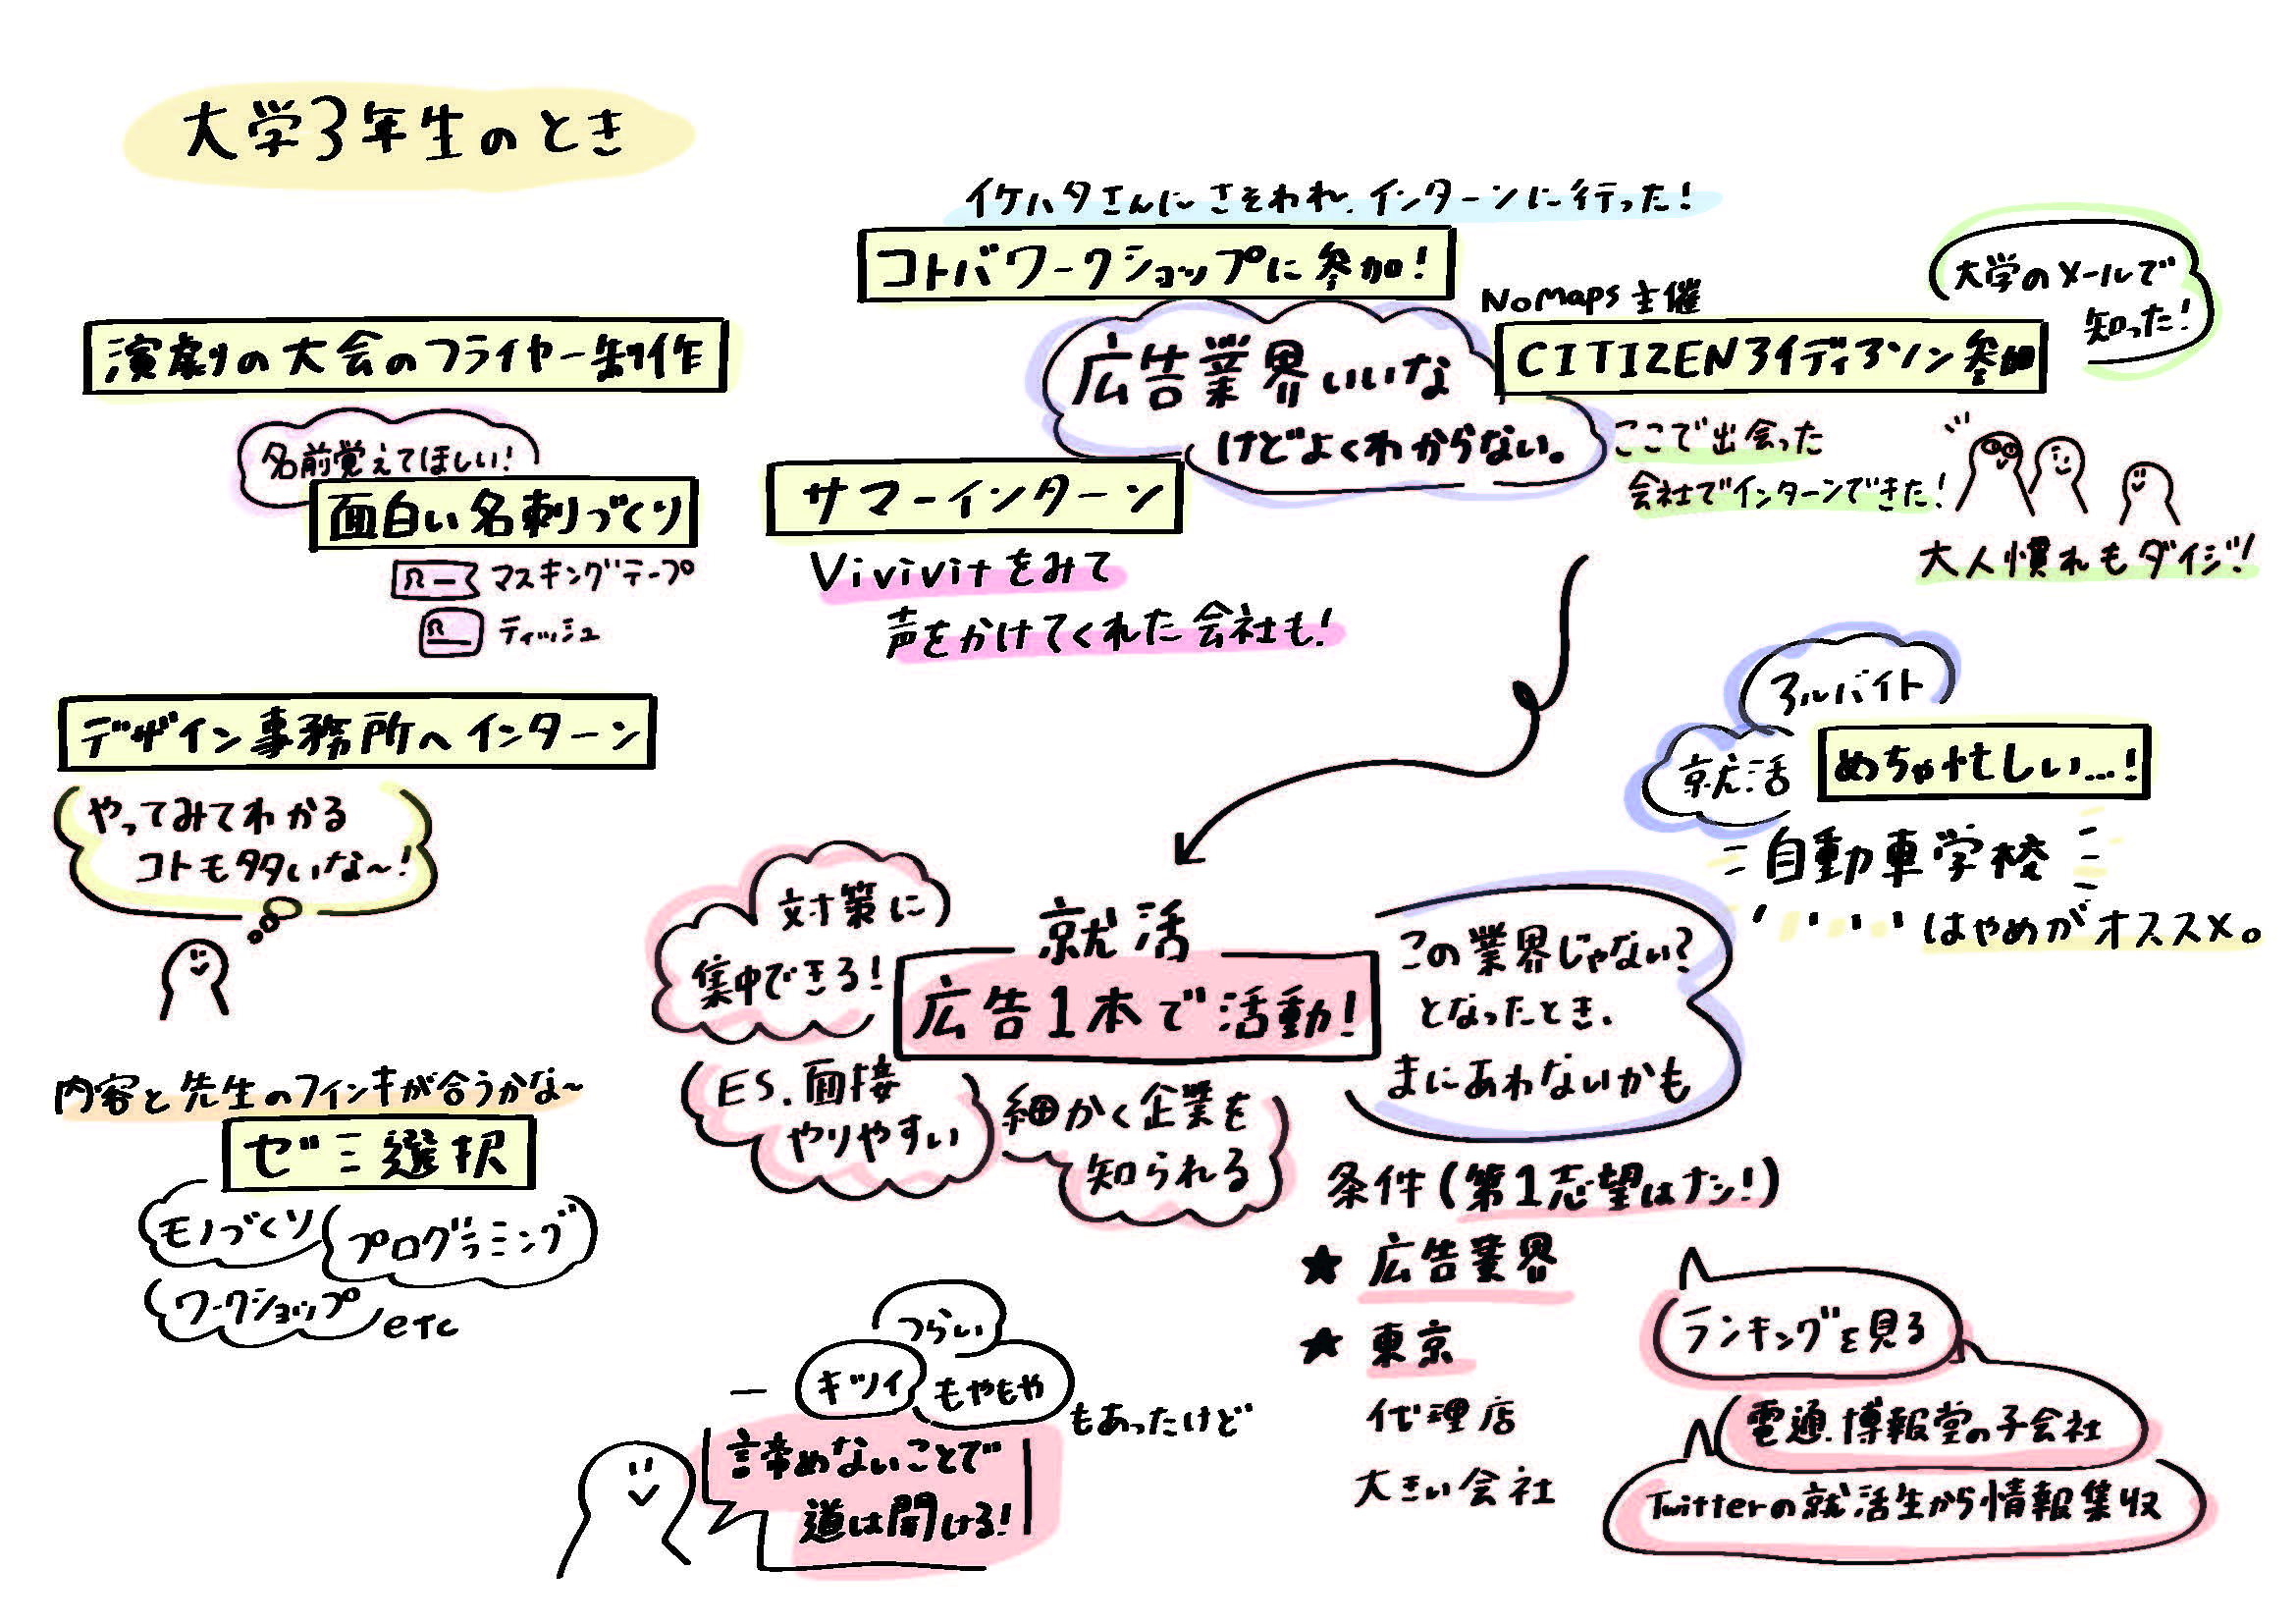 大学3年生のとき
演劇の大会のフライヤー制作
名前覚えてほしい!
面白い名刺づくり
マスキングテープ
ティッシュ
デザイン事務所へインターン
やってみてわかる
コトも多いな〜!
内容と先生のフインキが合うかな〜
ゼミ選択
モノづくり
プログラミング
ワークショップ
etc
イケハタさんにさそわれ、インターンに行った!
コトバワークショップに参加!
広告業界いいな
けどよくわからない。
サマーインターン
Vivivitをみて
声をかけてくれた会社も!
NoMaps主催
CITIZENアイディアソン参加
大学のメールで
知った!
ここで出会った
会社でインターンできた!
大人慣れもダイジ!
アルバイト
就活
めちゃ忙しい...!
自動車学校
はやめがオススメ。
就活
広告1本で活動!
対策に
集中できる!
ES、面接
やりやすい
細かく企業を
知られる
この業界じゃない?
となったとき、
まにあわないかも
条件(第1志望はナシ!)
★ 広告業界
★ 東京
代理店
大きい会社
ランキングを見る
電通、博報堂の子会社
Twitterの就活生から情報集収
つらい
キツイ
もやもや
もあったけど
諦めないことで
道は開ける!